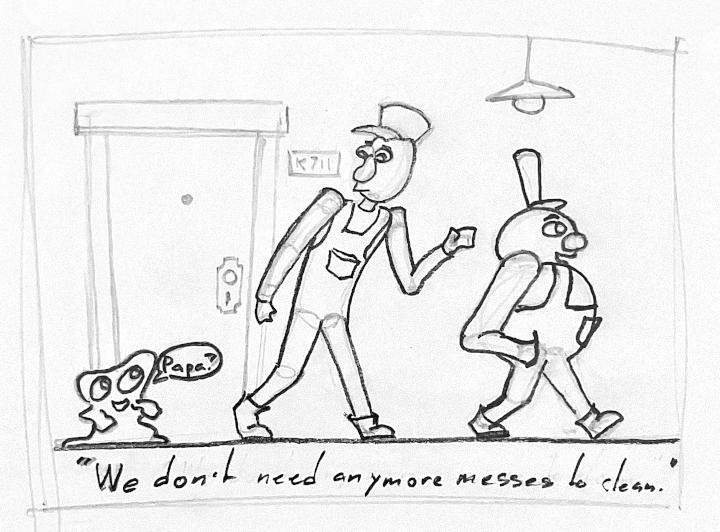 K711
Papa?
"We don't need anymore messes to clean."